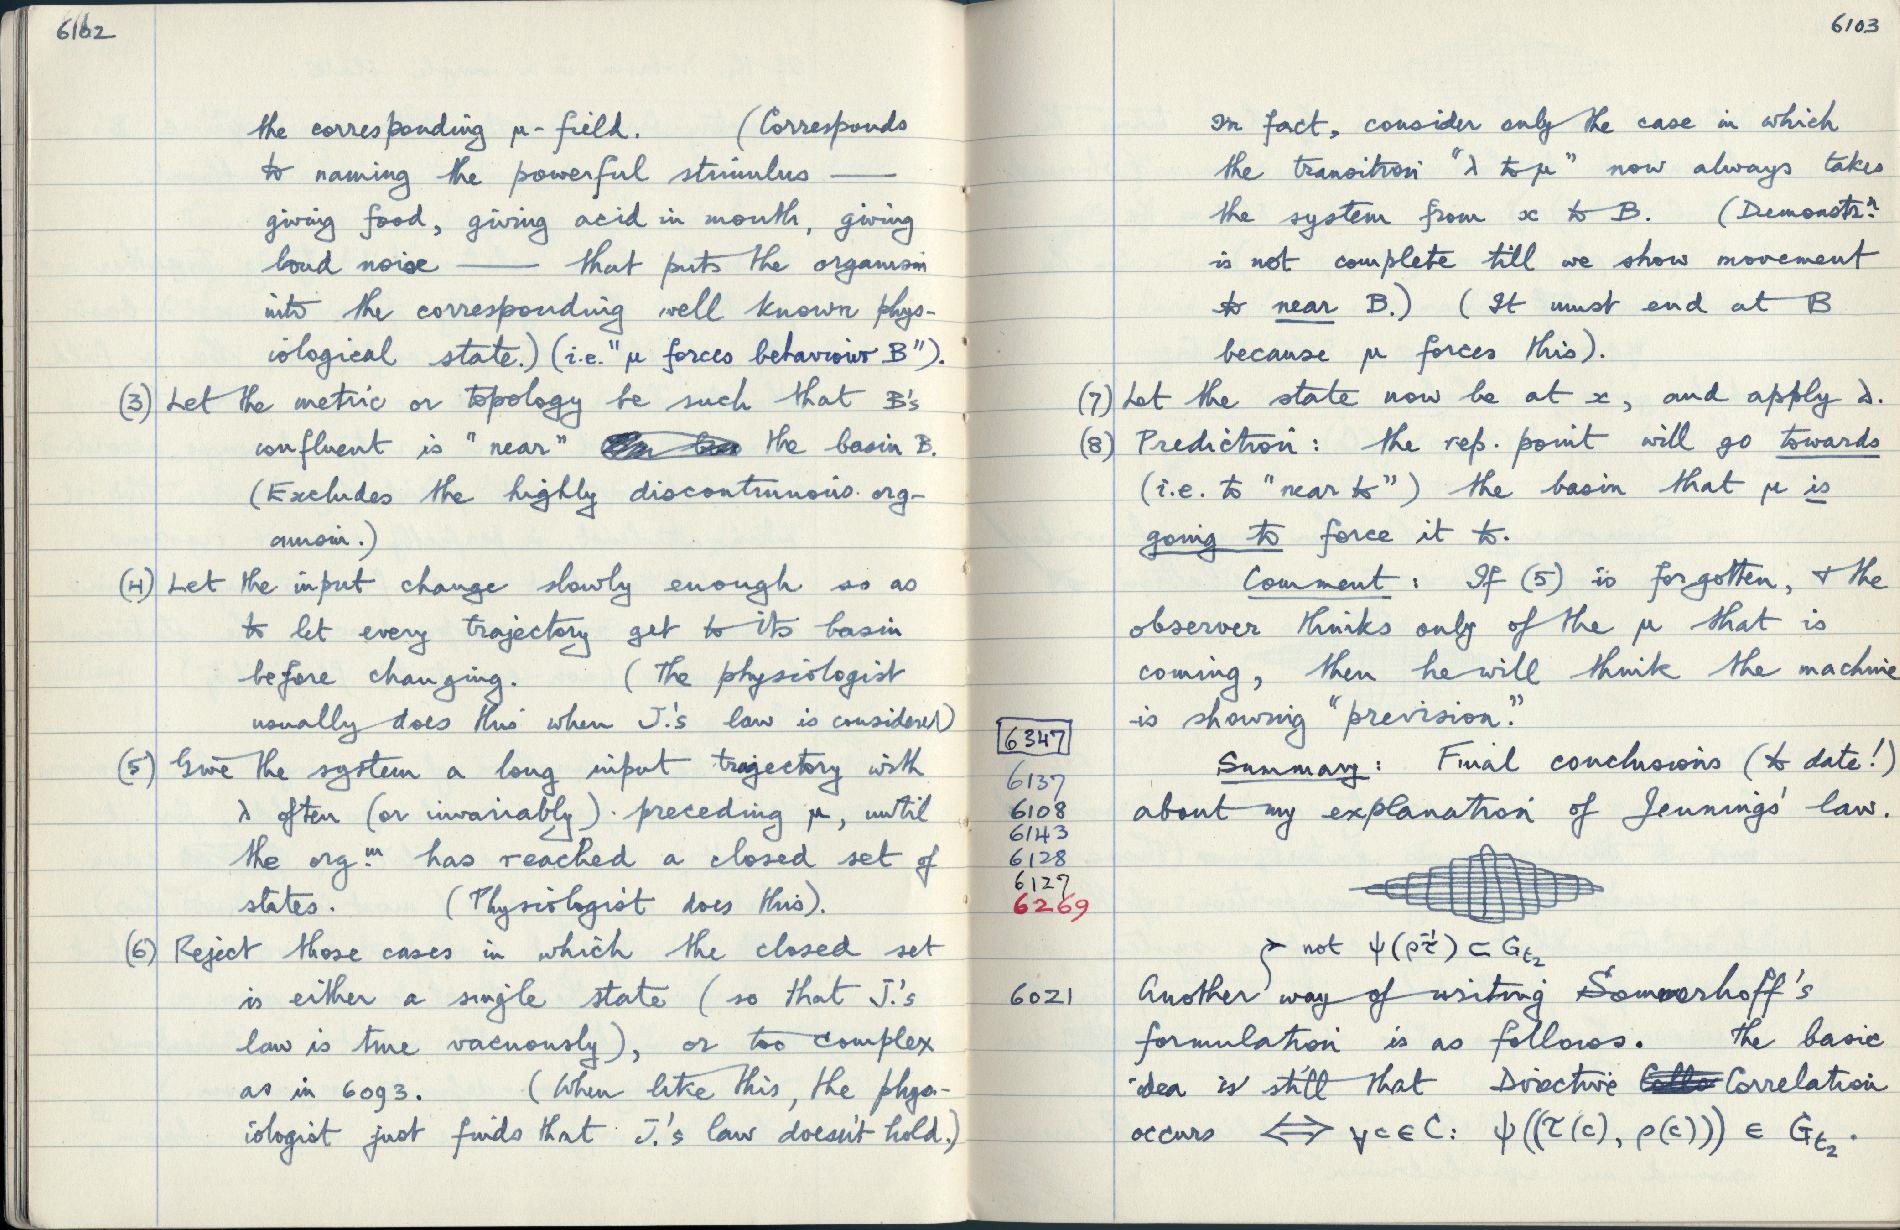 6102
the corresponding μ-field. (Corresponds
to naming the powerful stimulus ——
giving food, giving acid in mouth, giving
loud noise —— that puts the organism
into the corresponding well known phys-
iological state.) (i.e. "μ forces behaviour B").
(3) Let the metric or topology be such that B's
confluent is "near" the basin B.
(Excludes the highly discontinuous org-
anism.)
(4) Let the input change slowly enough so as
to let every trajectory get to its basin
before changing. (The physiologist
usually does this when J.'s law is considered)
(5) Give the system a long input trajectory with
λ often (or invariably) preceding μ, until
the org.m has reached a closed set of
states. (Physiologist does this).
(6) Reject those cases in which the closed set
is either a single state (so that J.'s
law is true vacuously), or too complex
as in 6093. (When like this, the phys-
iologist just finds that J.'s law doesn't hold.)
6103
In fact, consider only the case in which
the transition "λ to μ" now always takes
the system from x to B. (Demonstr.n
is not complete till we show movement
to near B.) (It must end at B
because μ forces this).
(7) Let the state now be at x, and apply λ.
(8) Prediction: the rep. point will go towards
(i.e. to "near to") the basin that μ is
going to force it to.
Comment: If (5) is forgotten, & the
observer thinks only of the μ that is
coming, then he will think the machine
is showing "prevision."
6347
Summary: Final conclusions (to date!)
6137
about my explanation of Jennings' law.
6108
6143
6128
6127
6269
not ψ(ρτ̄¹) ⊂ Gt₂
6021 Another way of writing Sommerhoff's
formulation is as follows. The basic
idea is still that Directive Correlation
occurs ⟺ ∀c∈C: ψ((τ(c), ρ(c))) ∈ Gt₂.